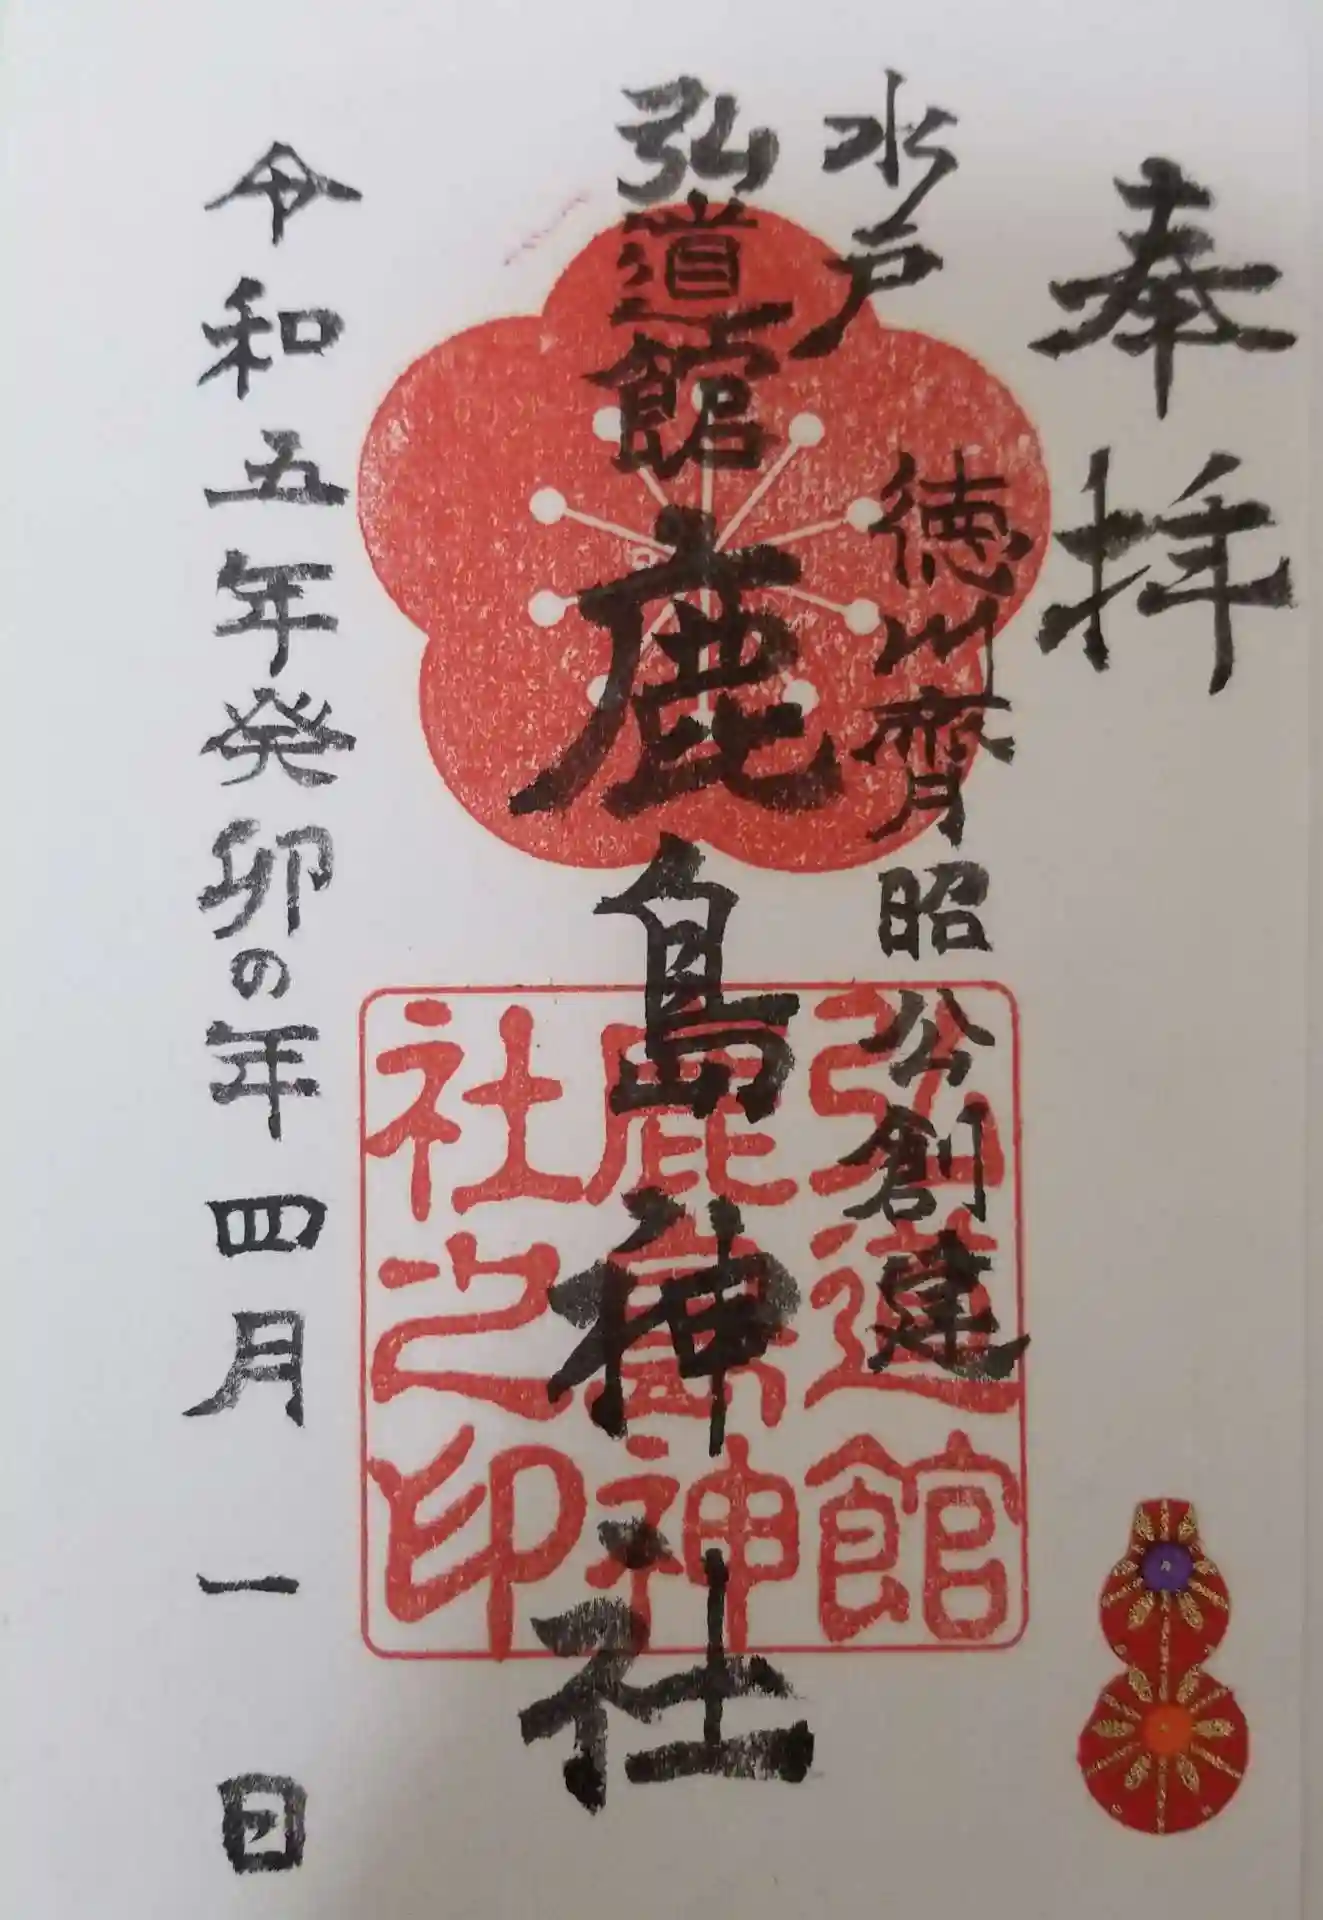 奉拝
水戸
徳川齊昭公創建
弘道館鹿島神社
弘道館
鹿島神
社之印
令和五年癸卯の年四月一日